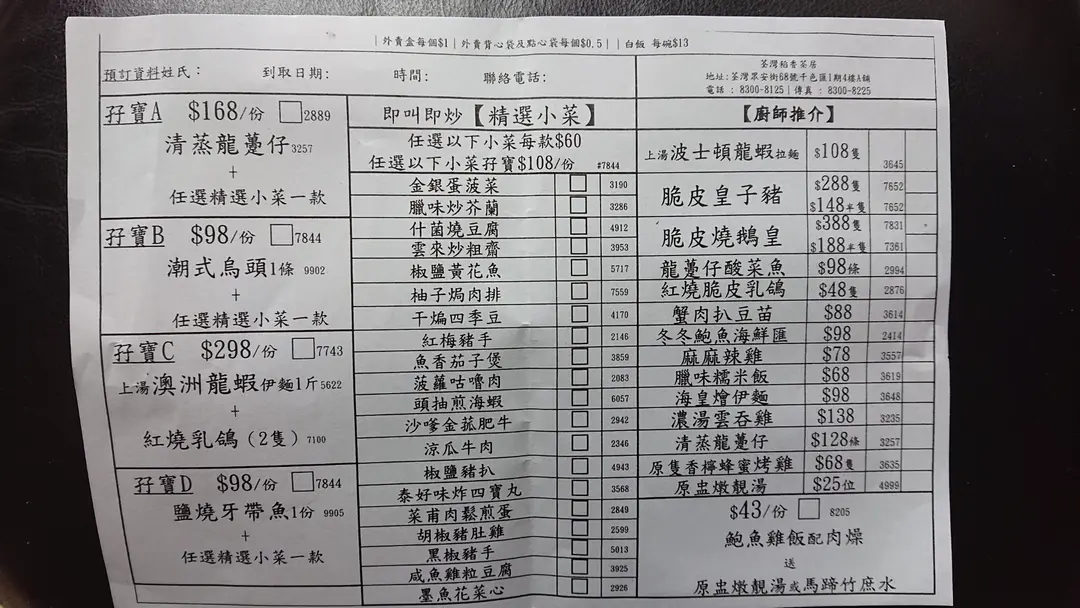 |外賣盒每個$1|外賣背心袋及點心袋每個$0.5| |白飯 每碗$13
預訂資料姓氏： 到取日期: 時間: 聯絡電話:
荃灣稻香茶居
地址:荃灣眾安街68號千色匯1期4樓A舖
電話 : 8300-8125|傳真 : 8300-8225
孖寶A $168/份 2889
清蒸龍躉仔3257
+
任選精選小菜一款
孖寶B $98/份 7844
潮式烏頭1條 9902
+
任選精選小菜一款
孖寶C $298/份 7743
上湯澳洲龍蝦伊麵1斤5622
+
紅燒乳鴿(2隻) 7100
孖寶D $98/份 7844
鹽燒牙帶魚1份 9905
+
任選精選小菜一款
即叫即炒【精選小菜】
任選以下小菜每款$60
任選以下小菜孖寶$108/份 #7844
金銀蛋菠菜 3190
臘味炒芥蘭 3286
什菌燒豆腐 4912
雲來炒粗齋 3953
椒鹽黃花魚 5717
柚子焗肉排 7559
干煸四季豆 4170
紅梅豬手 2146
魚香茄子煲 3859
菠蘿咕嚕肉 2083
頭抽煎海蝦 6057
沙嗲金菰肥牛 2942
涼瓜牛肉 2346
椒鹽豬扒 4943
泰好味炸四寶丸 3568
菜甫肉鬆煎蛋 2849
胡椒豬肚雞 2599
黑椒豬手 5013
咸魚雞粒豆腐 3925
墨魚花菜心 2926
【廚師推介】
上湯波士頓龍蝦拉麵 $108隻 3645
脆皮皇子豬 $288隻 7652
$148半隻 7652
脆皮燒鵝皇 $388隻 7831
$188半隻 7361
龍躉仔酸菜魚 $98條 2994
紅燒脆皮乳鴿 $48隻 2876
蟹肉扒豆苗 $88 3614
冬冬鮑魚海鮮匯 $98 2414
麻麻辣雞 $78 3557
臘味糯米飯 $68 3619
海皇燴伊麵 $98 3648
濃湯雲吞雞 $138 3235
清蒸龍躉仔 $128條 3257
原隻香檸蜂蜜烤雞 $68隻 3635
原盅燉靚湯 $25位 4999
$43/份 8205
鮑魚雞飯配肉燥
送
原盅燉靚湯或馬蹄竹庶水